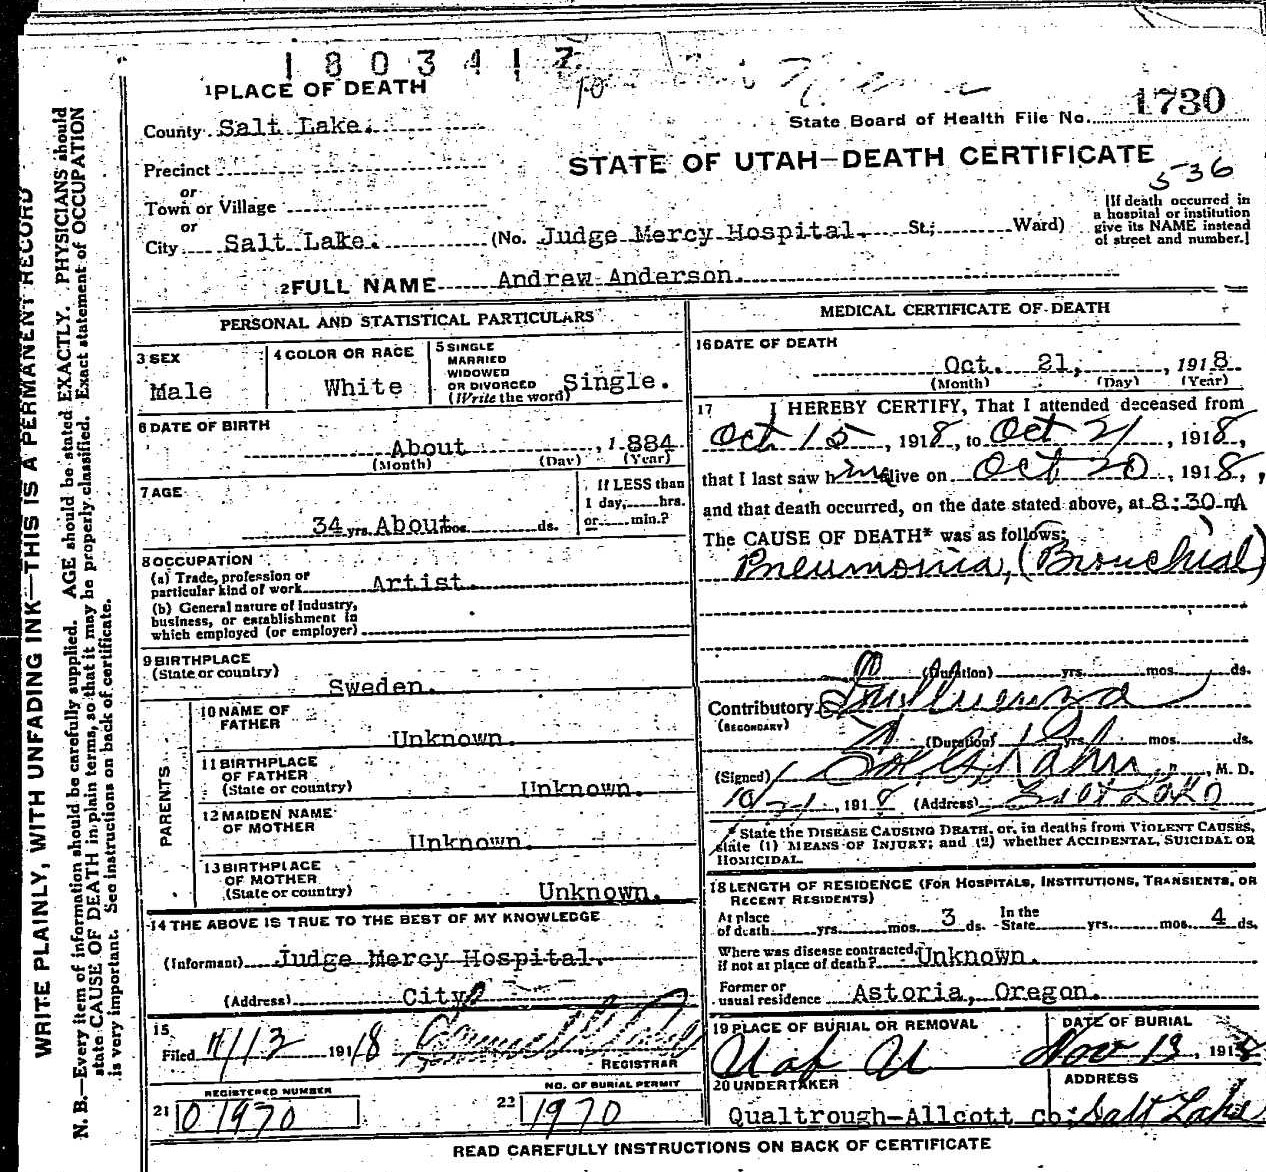 1803417
1PLACE OF DEATH
State Board of Health File No. 1730
County Salt Lake.
STATE OF UTAH—DEATH CERTIFICATE
536
Precinct
or
Town or Village
or
City Salt Lake. (No. Judge Mercy Hospital. St; Ward)
[If death occurred in
a hospital or institution
give its NAME instead
of street and number.]
2FULL NAME Andrew Anderson.
PERSONAL AND STATISTICAL PARTICULARS
3 SEX
Male
4 COLOR OR RACE
White
5 SINGLE
MARRIED
WIDOWED
OR DIVORCED
(Write the word) Single.
6 DATE OF BIRTH
About 1884
(Month) (Day) (Year)
7 AGE
34 yrs. About mos. ds.
If LESS than
1 day, hrs.
or min.?
8 OCCUPATION
(a) Trade, profession or
particular kind of work Artist.
(b) General nature of Industry,
business, or establishment in
which employed (or employer)
9 BIRTHPLACE
(State or country)
Sweden.
PARENTS
10 NAME OF
FATHER
Unknown.
11 BIRTHPLACE
OF FATHER
(State or country) Unknown.
12 MAIDEN NAME
OF MOTHER
Unknown.
13 BIRTHPLACE
OF MOTHER
(State or country) Unknown.
14 THE ABOVE IS TRUE TO THE BEST OF MY KNOWLEDGE
(Informant) Judge Mercy Hospital.
(Address) City
15
Filed 11/13 1918
REGISTRAR
REGISTERED NUMBER
21 01970
NO. OF BURIAL PERMIT
22 1970
MEDICAL CERTIFICATE OF DEATH
16 DATE OF DEATH
Oct. 21, 1918
(Month) (Day) (Year)
17 I HEREBY CERTIFY, That I attended deceased from
Oct 15, 1918, to Oct 21, 1918,
that I last saw him alive on Oct 20, 1918,
and that death occurred, on the date stated above, at 8:30 mA
The CAUSE OF DEATH* was as follows:
Pneumonia, (Bronchial)
(Duration) yrs. mos. ds.
Contributory Influenza
(SECONDARY)
(Duration) yrs. mos. ds.
(Signed) Kahn, M. D.
10/21, 1918 (Address) Salt Lake
* State the DISEASE CAUSING DEATH, or, in deaths from VIOLENT CAUSES,
state (1) MEANS OF INJURY; and (2) whether ACCIDENTAL, SUICIDAL OR
HOMICIDAL.
18 LENGTH OF RESIDENCE (FOR HOSPITALS, INSTITUTIONS, TRANSIENTS, OR
RECENT RESIDENTS)
At place
of death yrs. mos. 3 ds.
In the
State yrs. mos. 4 ds.
Where was disease contracted,
if not at place of death? Unknown.
Former or
usual residence Astoria, Oregon.
19 PLACE OF BURIAL OR REMOVAL
U of U
DATE OF BURIAL
Nov 13, 1918
20 UNDERTAKER
Qualtrough-Allcott Co;
ADDRESS
Salt Lake
READ CAREFULLY INSTRUCTIONS ON BACK OF CERTIFICATE
WRITE PLAINLY, WITH UNFADING INK—THIS IS A PERMANENT RECORD
N. B.—Every item of information should be carefully supplied. AGE should be stated EXACTLY. PHYSICIANS should
state CAUSE OF DEATH in plain terms, so that it may be properly classified. Exact statement of OCCUPATION
is very important. See instructions on back of certificate.